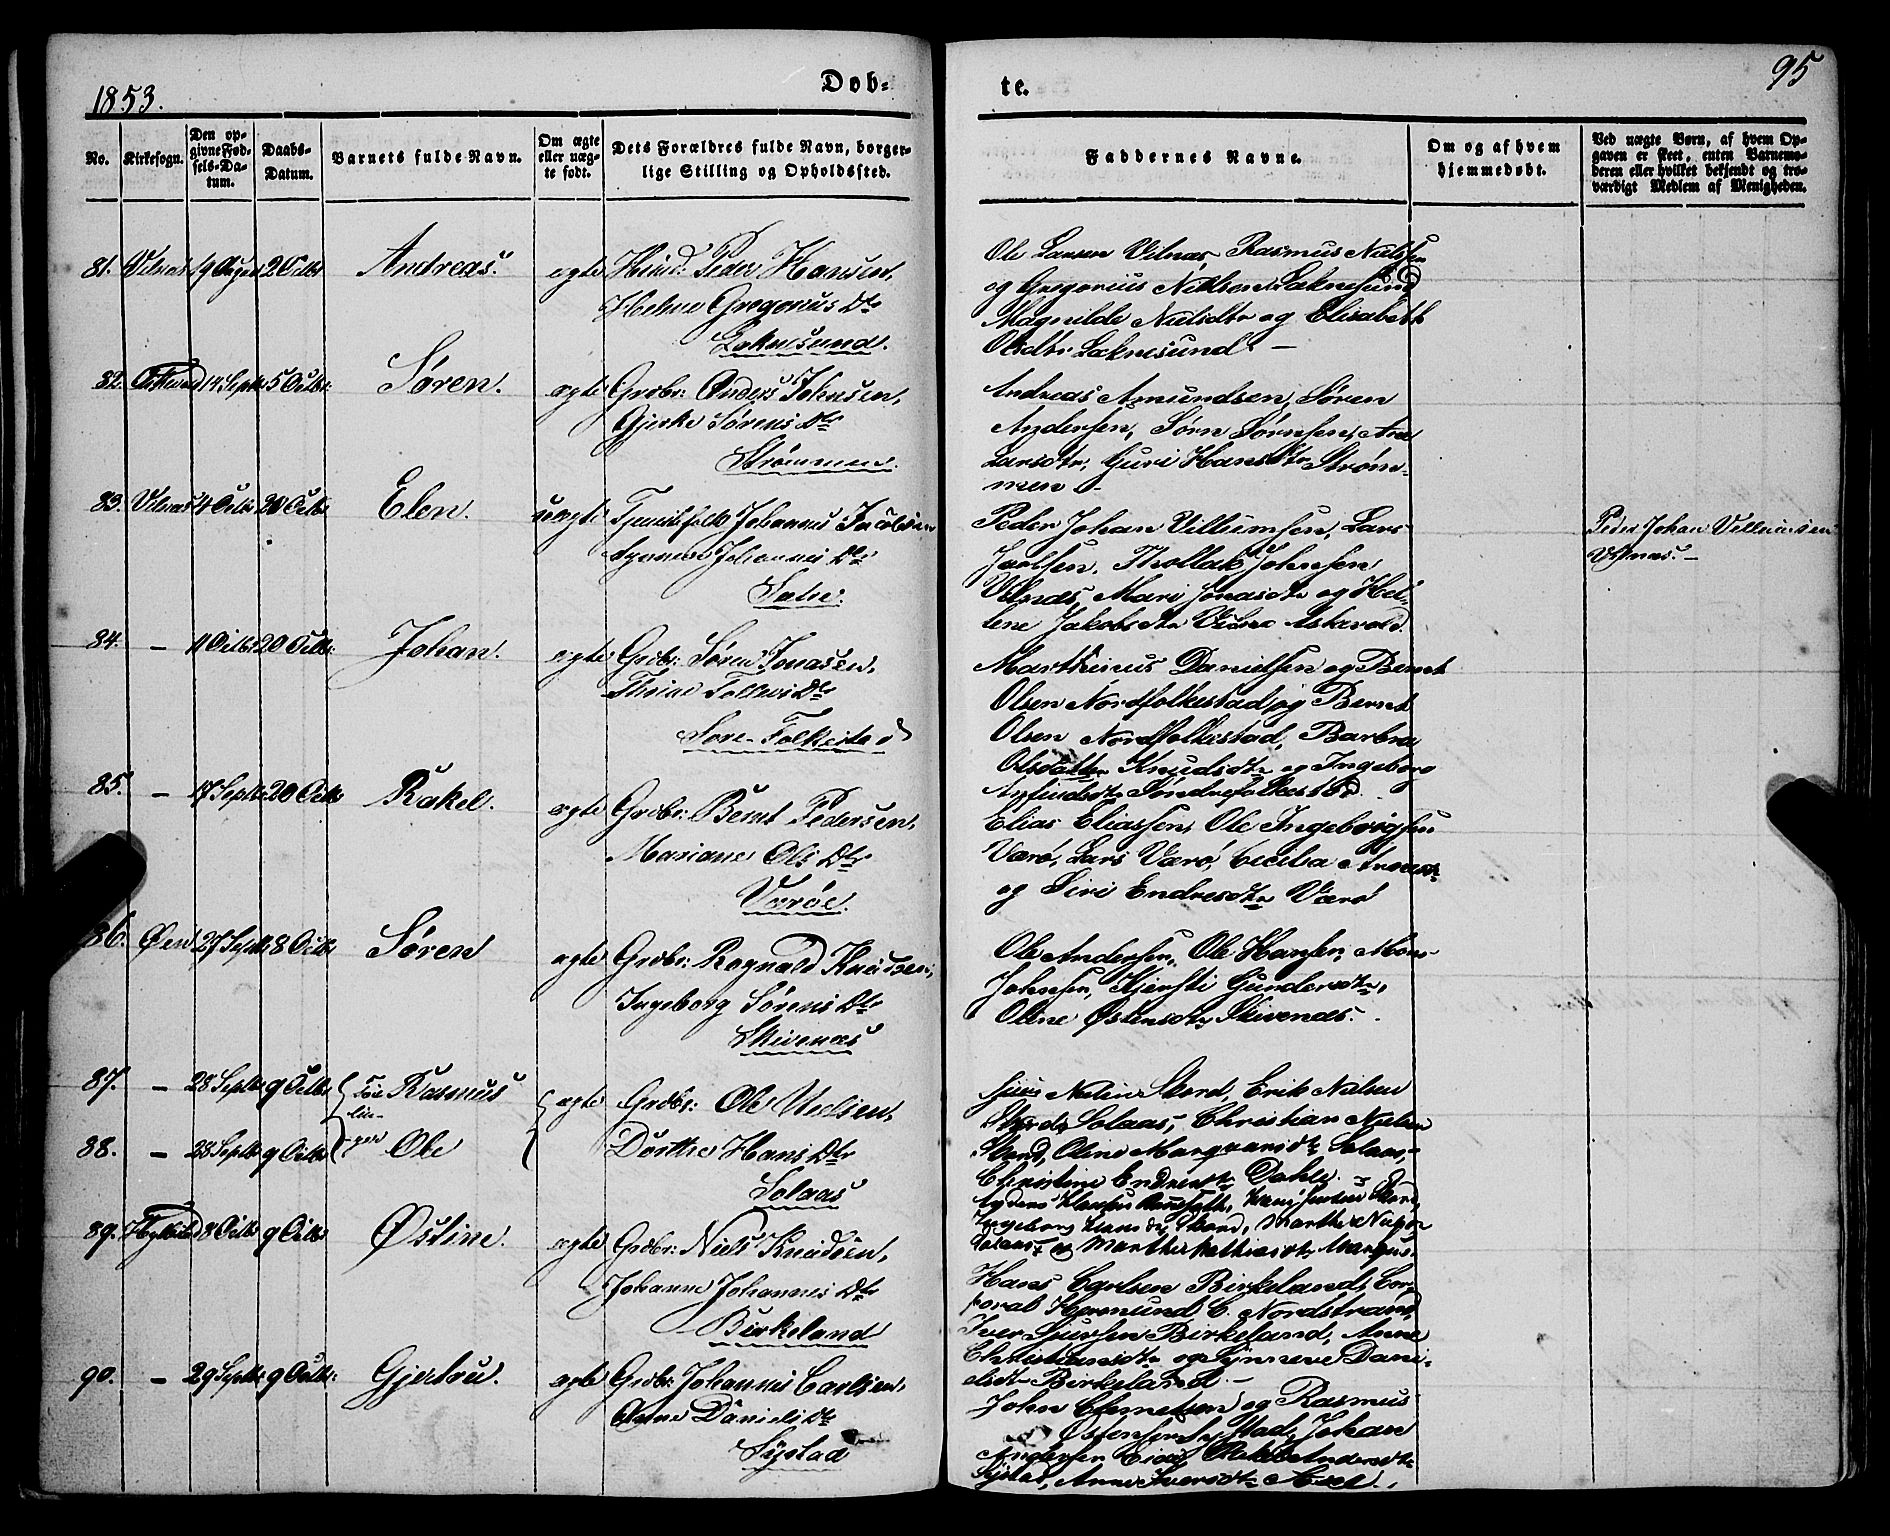 1853.
Dob-
te.
95
No.
Kirkesogn.
Den op-
givne Fød-
sels-Da-
tum.
Daabs-
Datum.
Barnets fulde Navn.
Om ægte
eller uæg-
te født.
Dets Forældres fulde Navn, borger-
lige Stilling og Opholdssted.
Faddernes Navne.
Om og af hvem
hjemmedøbt.
Ved uægte Børn, af hvem Op-
gaven er skeet, enten Barnemo-
deren eller hvilket bekjendt og tro-
værdigt Medlem af Menigheden.
81. Vilnæs 19 August 2 Octbr Andreas. ægte Huusm: Peder Hansen,
Helene Gregorius Dtr
Laknesund.
Ole Larsen Vilnæs, Rasmus Nielsen
og Gregorius Nielsen Laknesund
Magnilde Nielsdtr og Elisabeth
Olsdtr Laknesund. —
82. Askevold 14 Septbr 5 Octbr: Søren. ægte Grdbr: Anders Johnsen,
Gjerke Sørens Dtr
Strømmen.
Andreas Amundsen, Søren
Andersen, Sørn Sørnsen, Ane
Larsdtr, Guri Hansdtr Strøm-
men
83. Vilnæs 4 Octbr 20 Octbr Elen. uægte Tjenstfolk Johannes Jacobsen
Synneve Johannes Dtr
Peder Johan Villumsen, Lars
Thollak Johnsen
Vilnæs, Mari Jonasdtr og Hel-
lene Jakobsdtr Askevold.
Peder Johan Villumsen
Vilnæs. —
84. — 11 Octbr 20 Octbr: Johan. ægte Grdbr: Søren Jonasen,
Dtr
Søre-Folkestad
Marthinus Danielsen og Bernt
Olsen Nordfolkestad og Bernt
Olsen Nordfolkestad, Barbra
Olsdatter Knudsdtr og Ingeborg
Anfindsdtr Søndrefolkestad.
85. — 17 Septbr 20 Octbr Rakel. ægte Grdbr: Bernt Pedersen,
Mariane Ols Dtr
Værøe.
Elias Eliassen, Ole Ingebrigtsen
Værø, Lars Værø, Cecilia
og Siri Endresdtr Værø
86. Øen 27 Septbr 8 Octbr Søren ægte Grdbr: Ragnald Knudsen,
Ingeborg Sørens Dtr
Skivenæs
Ole Andersen, Ole Hansen, Mons
Johnsen, Kjersti Gundersdtr,
Oline Østensdtr Skivenæs.
87. — 28 Septbr 9 Octbr Tvil- Rasmus ægte Grdbr: Ole Nielsen,
lin-
88. — 28 Septbr 9 Octbr ger Ole Dorthe Hans Dtr
Solaas
Nielsen Stord, Erik Nielsen
Solaas, Christian Nielsen
Stord, Oline Solaas,
Christine Endresdtr Dahle. —
Ingeborg Hansdtr Stord, Marthe
Solaas og Marthe Mathiasdtr
89. 8 Octbr 9 Octbr Østine. ægte Grdbr: Niels Knudsen,
Johanne Johannes Dtr
Birkeland
Hans Carlsen Birkeland, Cor-
poral Hermund C. Nordstrand,
Iver Sjursen Birkeland, Anne
Christiansdtr og Synneve Dani-
elsdtr Birkeland. —
90. — 29 Septbr 9 Octbr: Gjertru. ægte Grdbr: Johannes Carlsen,
Anne Daniels Dtr
Systad
John Clemetsen og Rasmus
Østensen Systad, Johan
Andersen Andersdtr
Systad, Anne Iversdtr